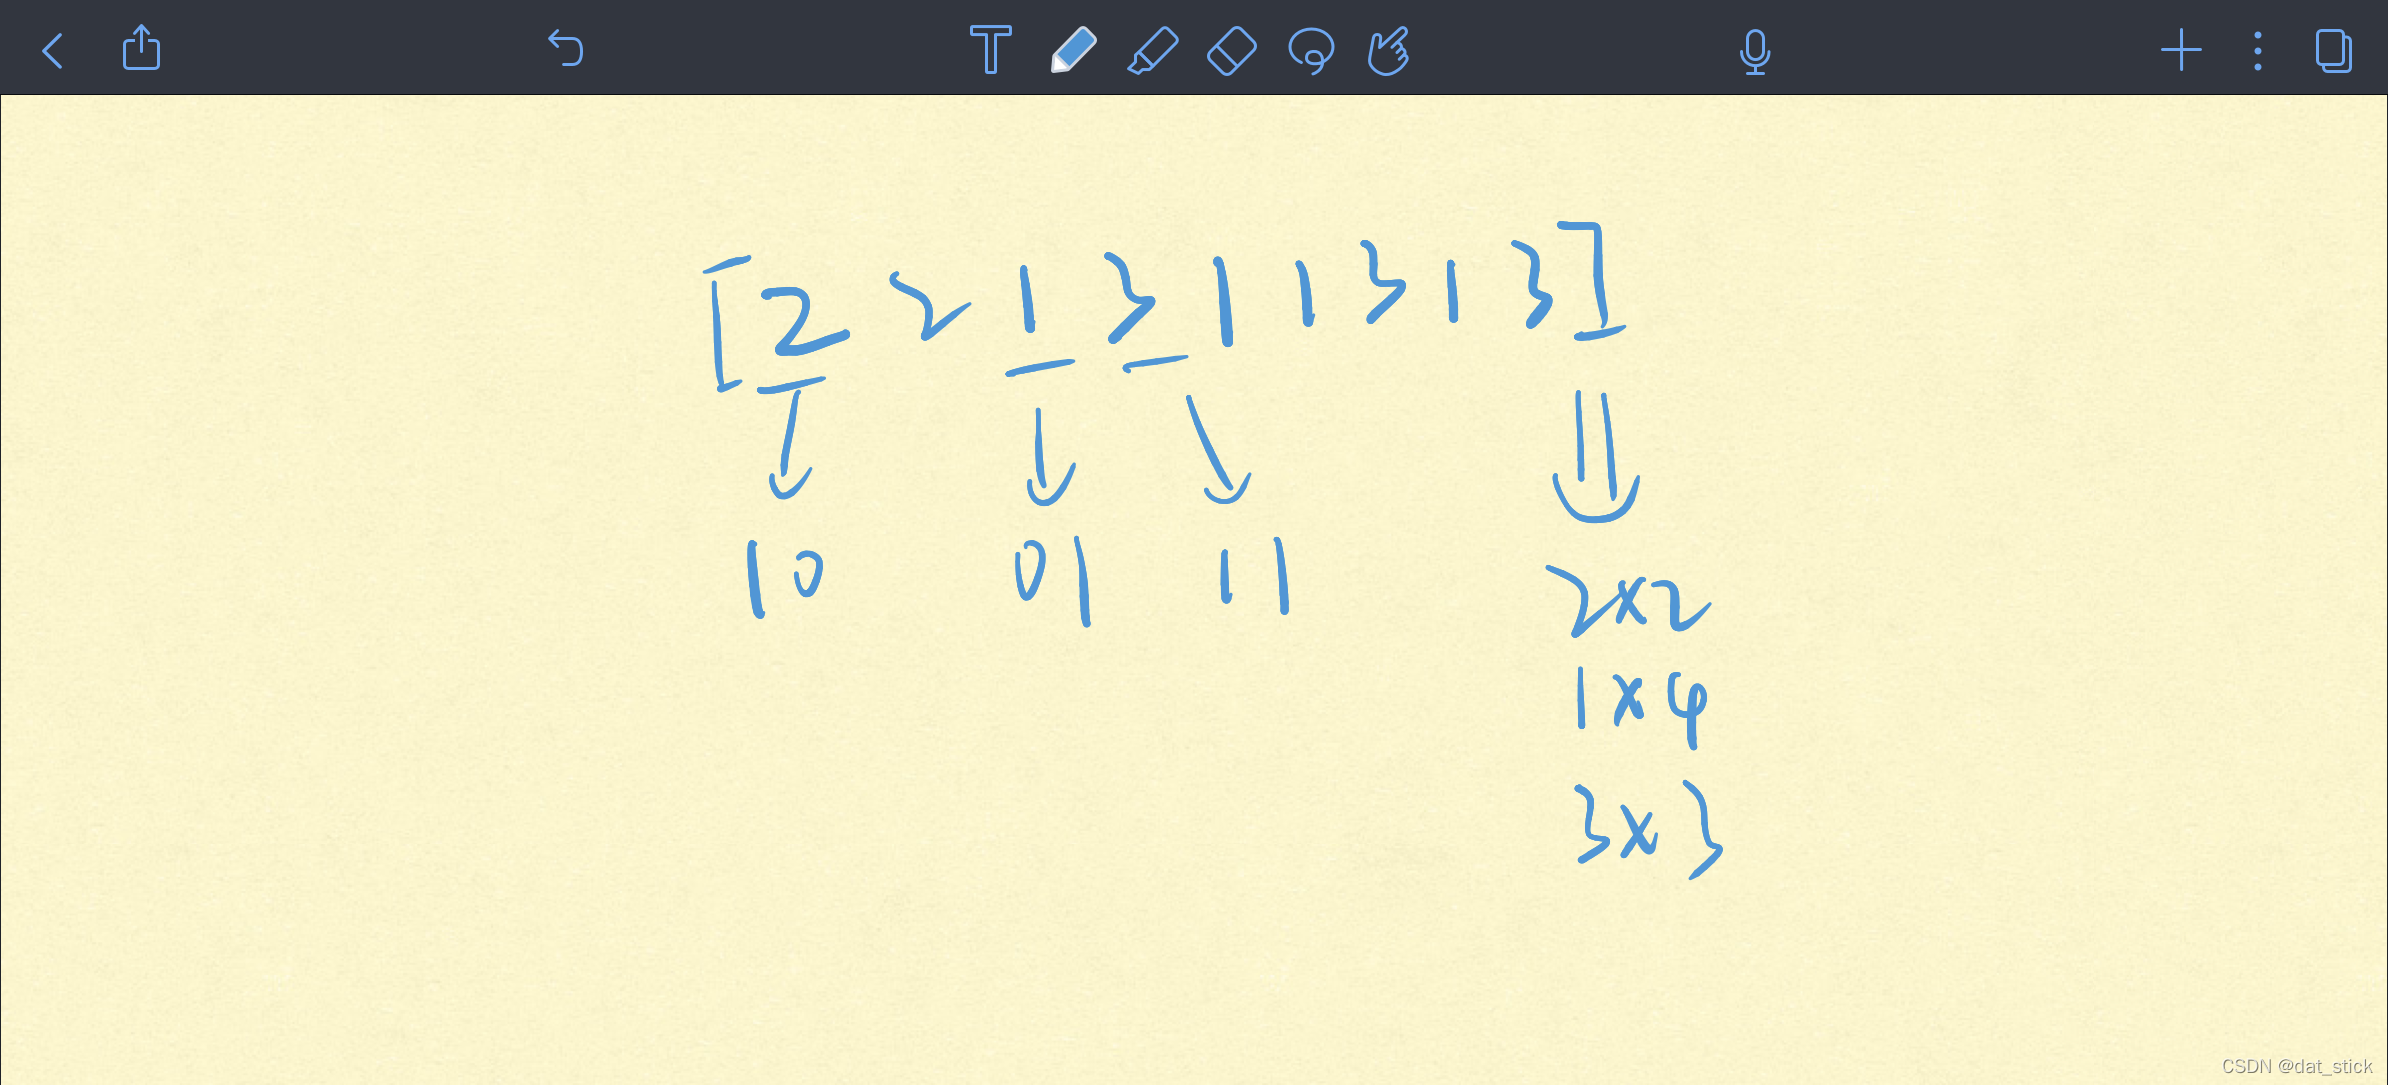 [2 2 1 3 1 1 3 1 3]
10 01 11
2x2
1x4
3x3
CSDN @dat_stick